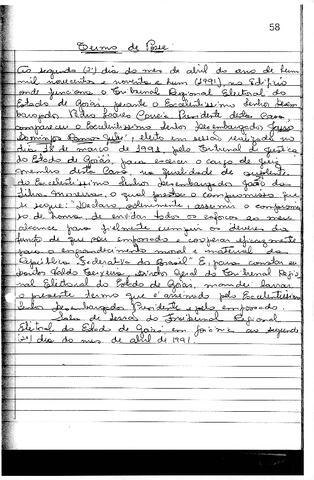 58
Termo de Posse
Ao segundo (2º) dia do mes de abril do ano de hum
mil novecentos e noventa e hum (1991), no Edifício
onde funciona o Tribunal Regional Eleitoral do
Estado de Goiás, perante o Excelentíssimo Senhor Desem-
bargador Pedro Soares Correia Presidente desta Casa,
compareceu o Excelentíssimo Senhor Desembargador
eleito em sessão realizada no
dia 18 de março de 1991, pelo Tribunal de Justiça
do Estado de Goiás, para exercer o cargo de Juiz
membro desta Casa, na qualidade de
do Excelentíssimo Senhor Desembargador João da
o qual prestou o compromisso que
se segue: "Declaro solenemente, assumir o compromis-
so de honra, de envidar todos os esforços ao meu
alcance para fielmente cumprir os deveres da
função de que sou empossado e cooperar eficazmente
para o engrandecimento moral e material da
República Federativa do Brasil". E, para constar eu
Diretor Geral do Tribunal Regio-
nal Eleitoral do Estado de Goiás, mandei lavrar
o presente termo que é assinado pelo Excelentíssimo
Senhor Desembargador Presidente e pelo empossado.
Sala de Sessão do Tribunal Regional
Eleitoral do Estado de Goiás, em Goiânia ao segundo
(2º) dia do mes de abril de 1991.